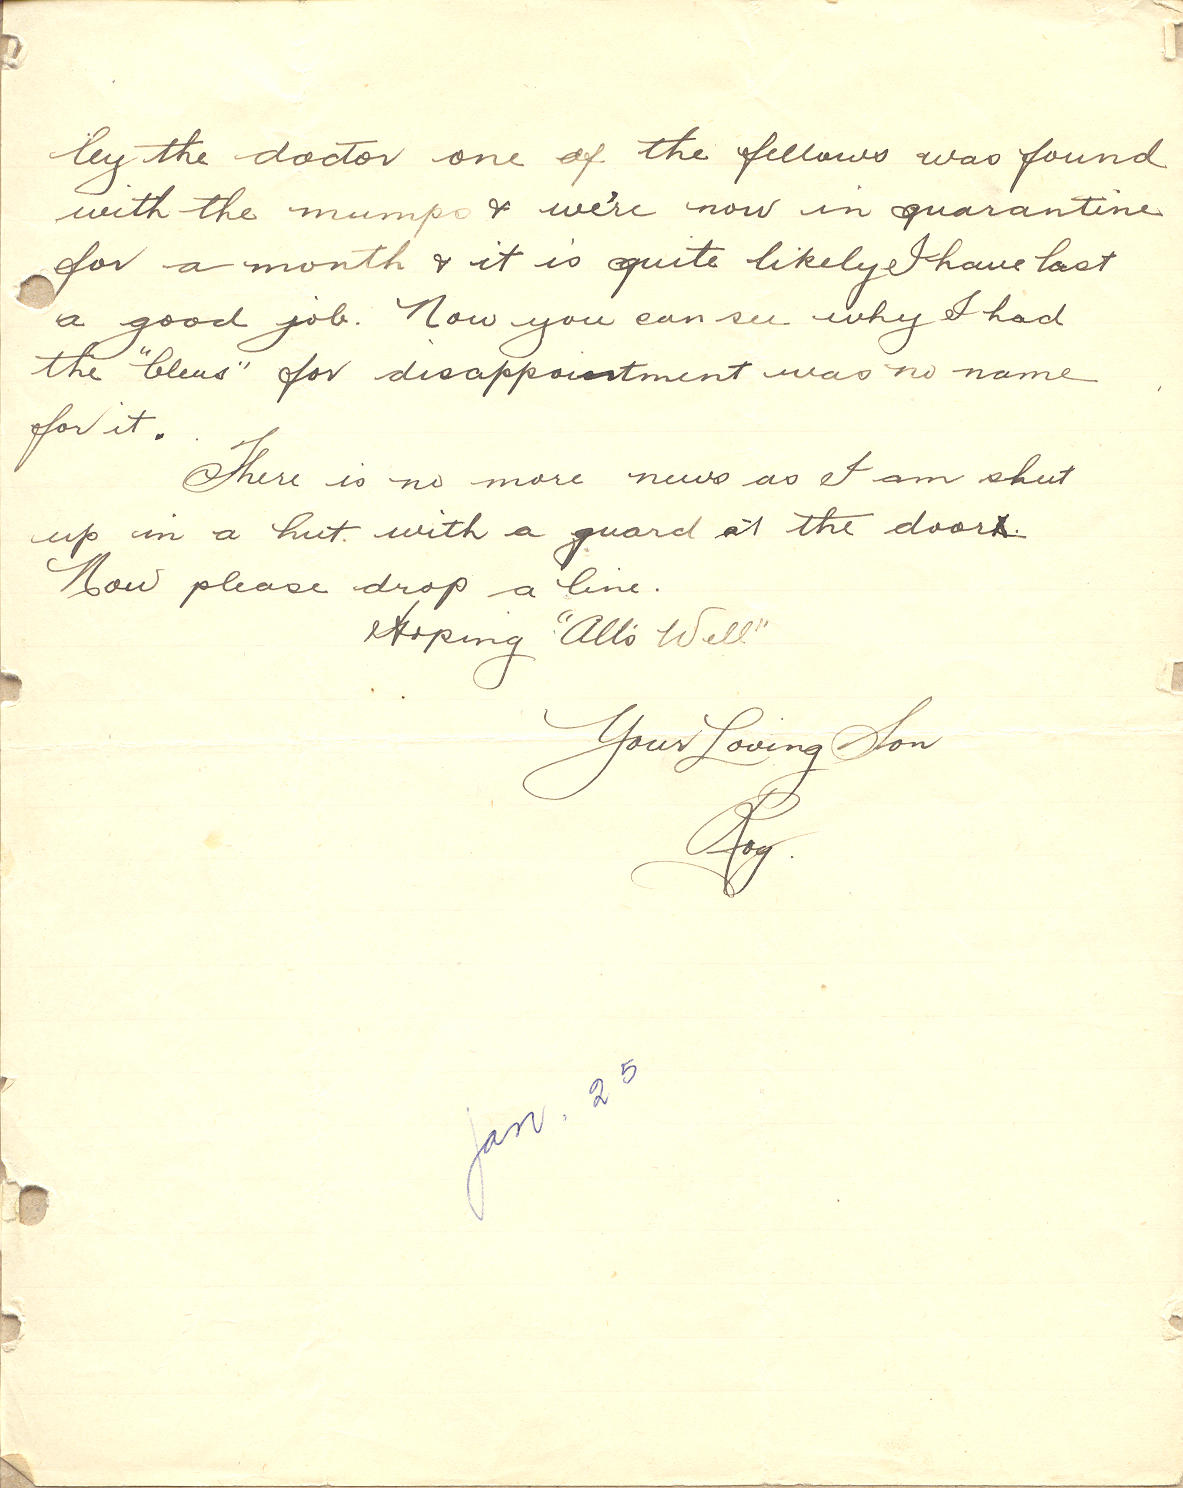 by the doctor one of the fellows was found
with the mumps & we're now in quarantine
for a month & it is quite likely I have lost
a good job. Now you can see why I had
the "blues" for disappointment was no name
for it.
There is no more news as I am shut
up in a hut with a guard at the door.
Now please drop a line.
Hoping "All's Well"
Your Loving Son
Roy.
Jan. 25